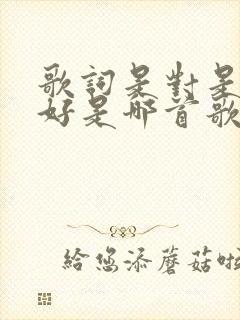 歌詞是對是
好是哪首歌
給您添蘑菇啦